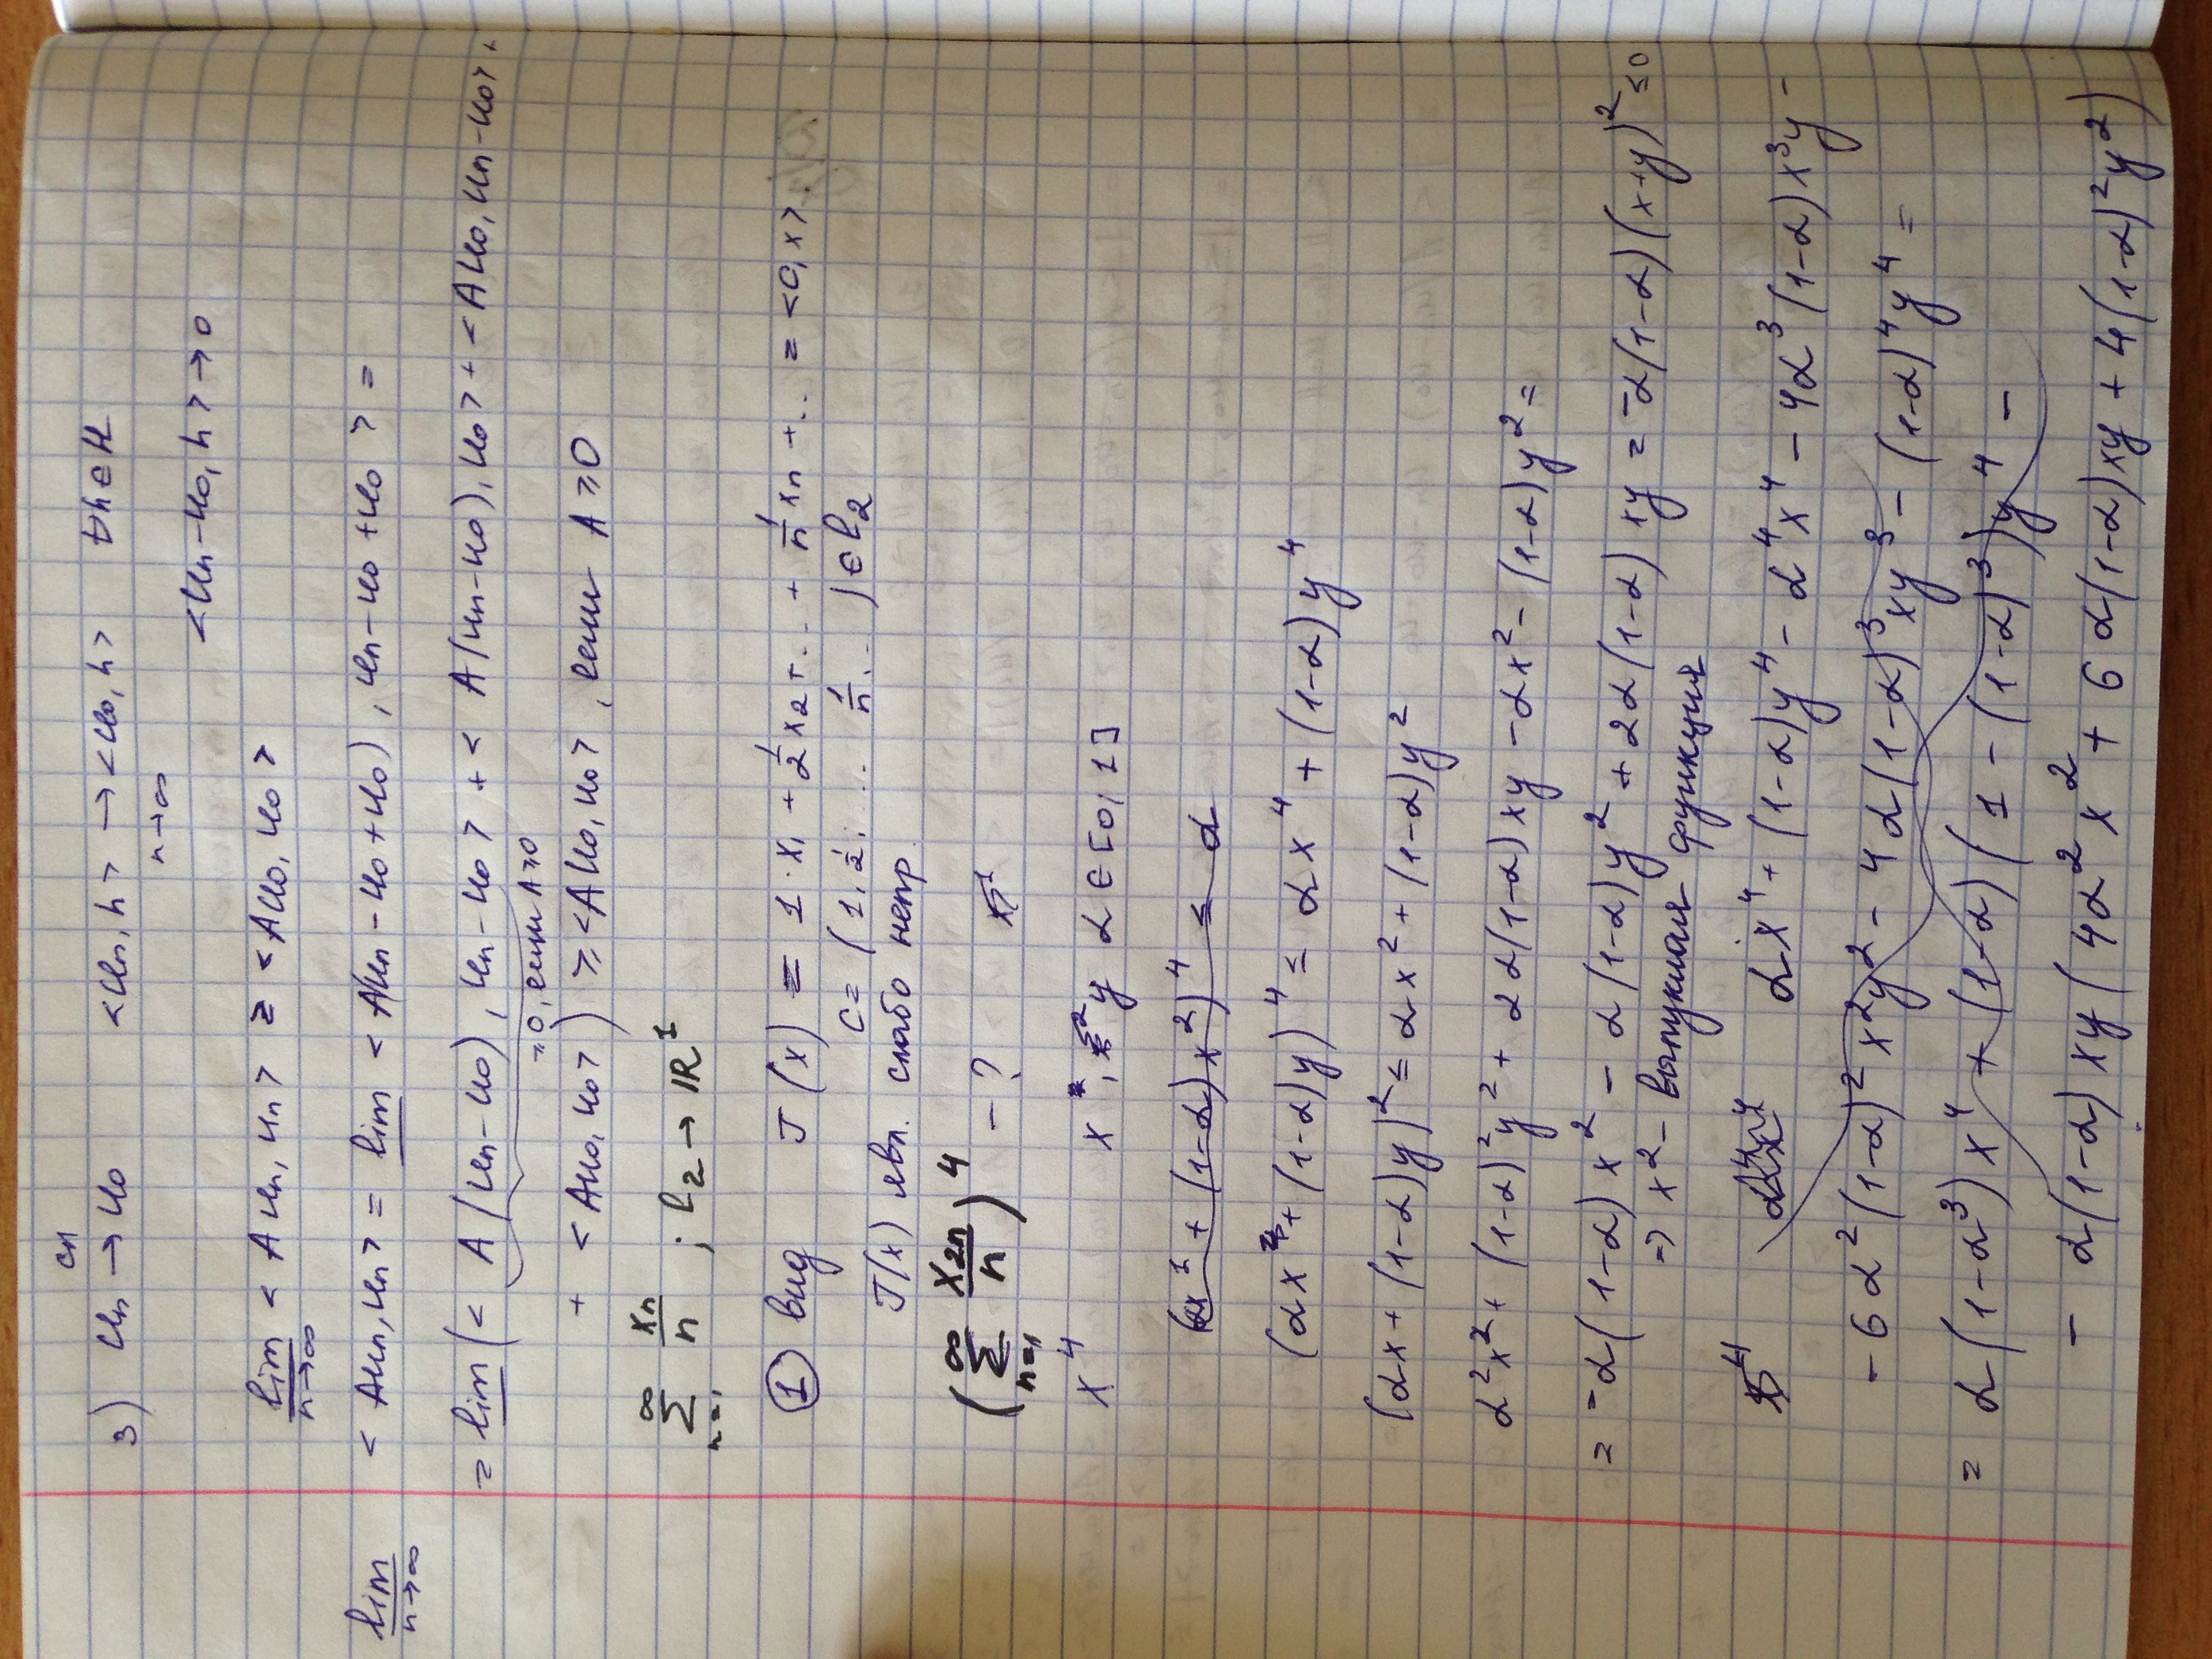 3) uₙ →ᶜᴧ u₀   <uₙ, h> → <u₀, h>   ∀h∈H
n→∞
<uₙ-u₀, h> → 0
lim n→∞ <Auₙ, uₙ> ≥ <Au₀, u₀>
lim n→∞ <Auₙ, uₙ> = lim <A(uₙ-u₀+u₀), uₙ-u₀+u₀> =
= lim (<A(uₙ-u₀), uₙ-u₀> + <A(uₙ-u₀), u₀> + <Au₀, uₙ-u₀> +
≥0, если A≥0
+ <Au₀, u₀>) ≥ <Au₀, u₀>, если A≥0
∑ n=1 ∞ xₙ/n ; l₂ → ℝ¹
① вид   J(x) = 1·x₁ + 1/2 x₂ + .. + 1/n xₙ + ... = <c, x>
c = (1, 1/2, .... 1/n .. ) ∈ l₂
J(x) явл. слабо непр.
(∑ n=1 ∞ x₂ₙ/n)⁴ - ?
x⁴   x, y   α∈[0, 1]
+ (1-α)x²)⁴ ≤ α
(αx + (1-α)y)⁴ ≤ αx⁴ + (1-α)y⁴
(αx + (1-α)y)² ≤ αx² + (1-α)y²
α²x² + (1-α)²y² + 2α(1-α)xy - αx² - (1-α)y² =
= -α(1-α)x² - α(1-α)y² + 2α(1-α)xy = -α(1-α)(x+y)² ≤ 0
⇒ x² - выпуклая функция
αx⁴ + (1-α)y⁴ - α⁴x⁴ - 4α³(1-α)x³y -
- 6α²(1-α)²x²y² - 4α(1-α)³xy³ - (1-α)⁴y⁴ =
= α(1-α³)x⁴ + (1-α)(1-(1-α)³)y⁴ -
- α(1-α)xy(4α²x² + 6α(1-α)xy + 4(1-α)²y²)